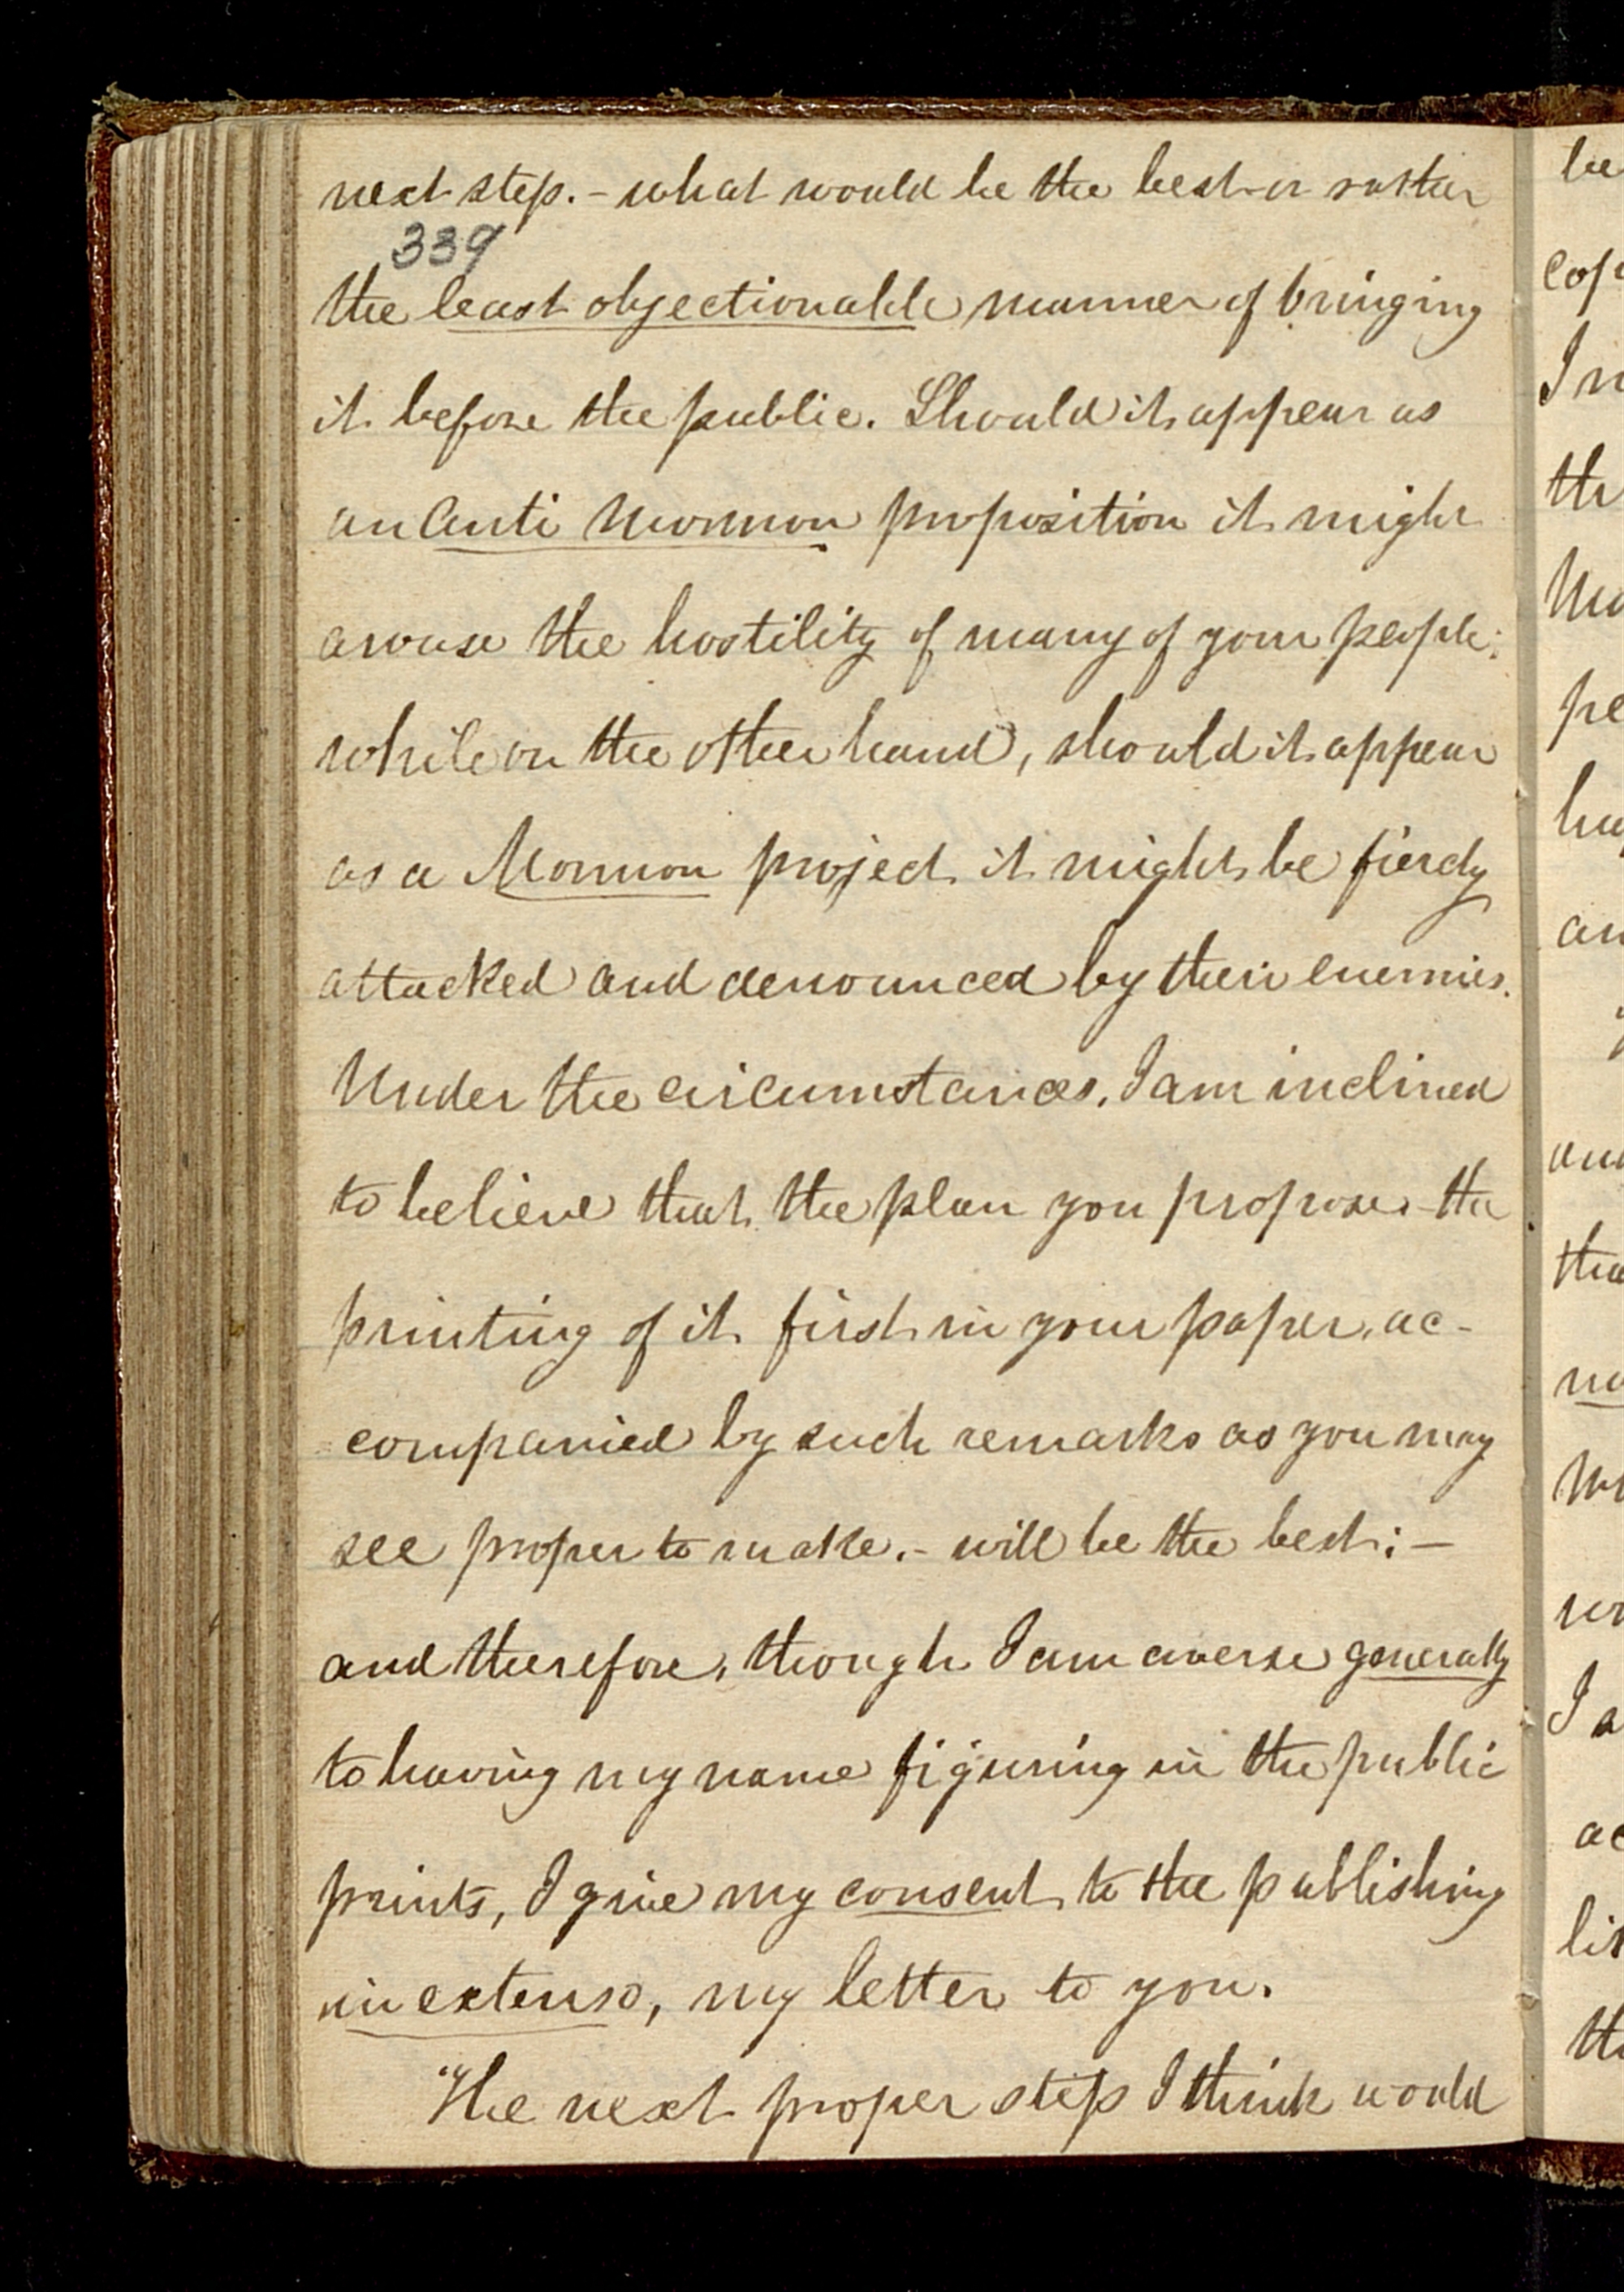 next step. - what would be the best or rather
339
the least objectionable manner of bringing
it before the public. Should it appear as
an Anti Mormon proposition it might
arouse the hostility of many of your people;
while on the other hand, should it appear
as a Mormon project it might be fiercly
attacked and denounced by their enemies.
Under the circumstances, I am inclined
to believe that the plan you propose - the
printing of it first in your paper, ac-
companied by such remarks as you may
see proper to make. - will be the best; -
and therefore, though I am averse generally
to having my name figuring in the public
prints, I give my consent to the publishing
in extenso, my letter to you.
"The next proper step I think would
be
I